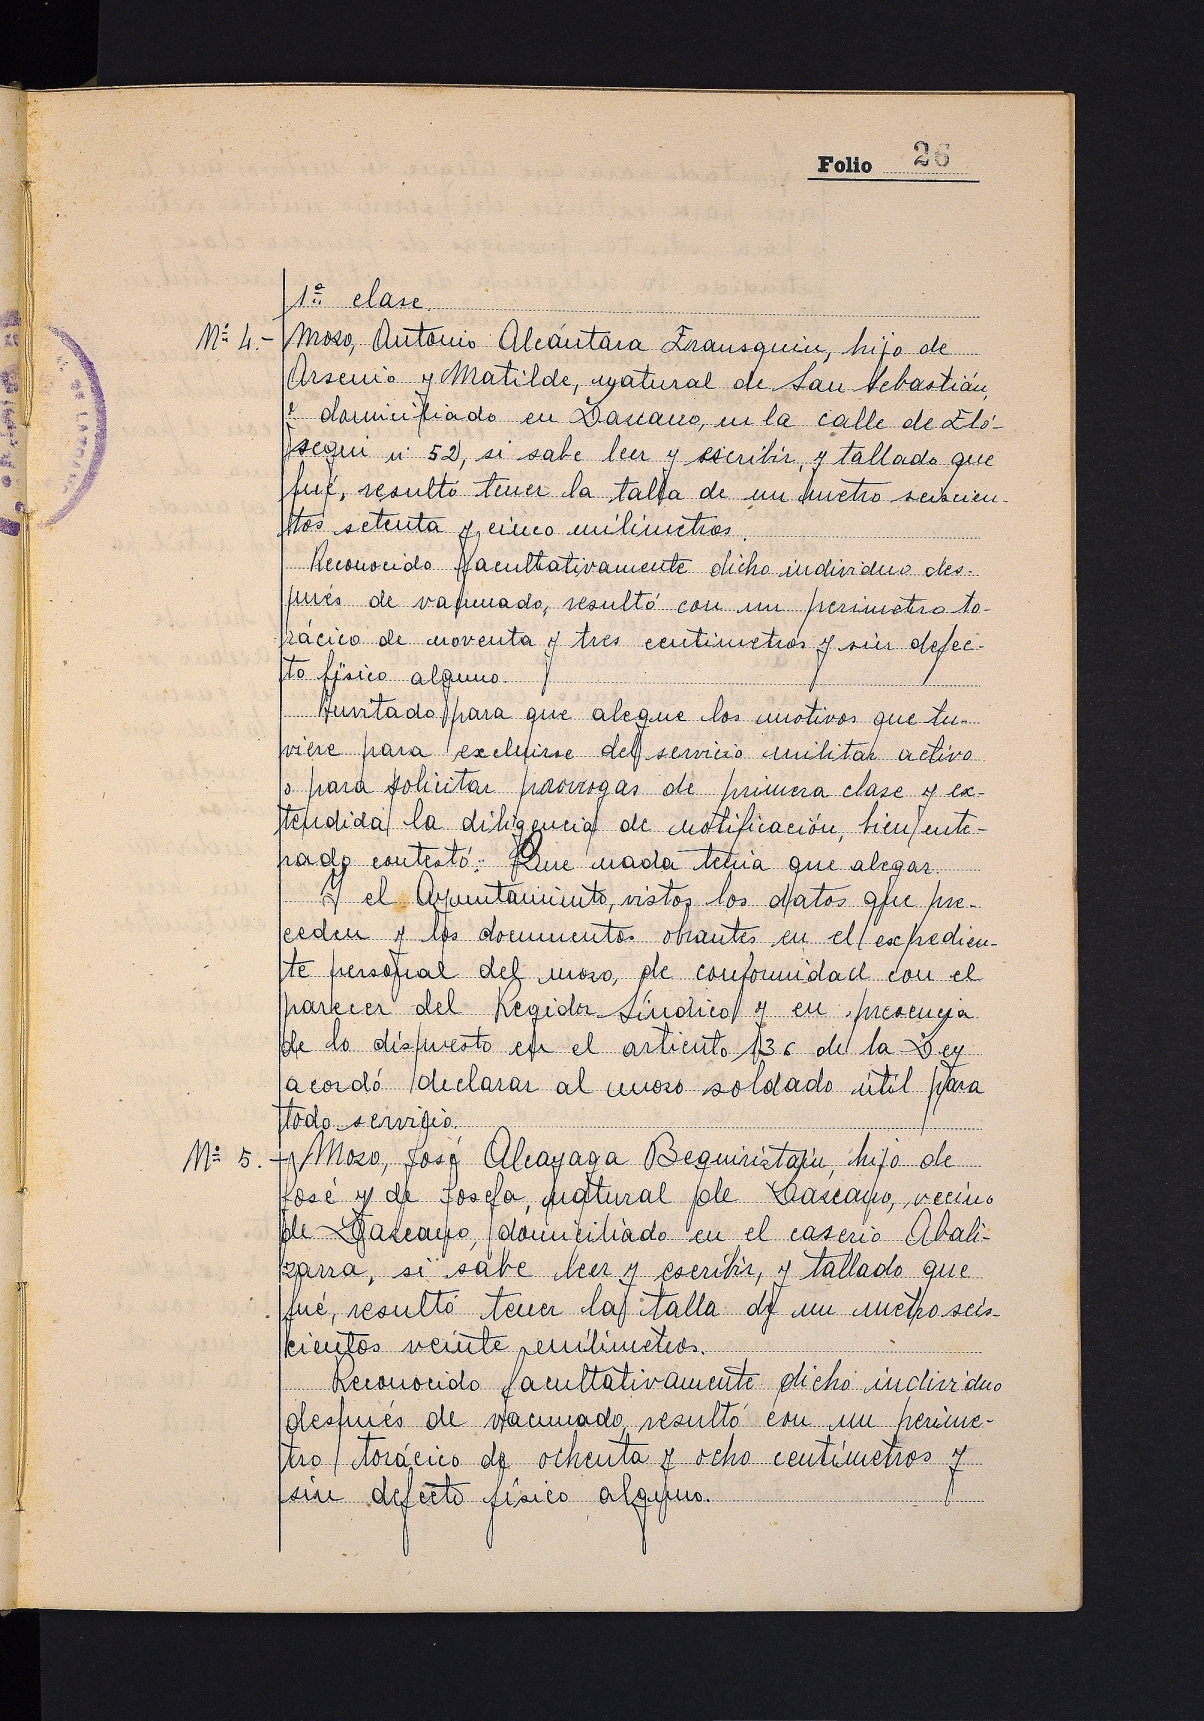 Folio 26
1ª clase.
Nº 4.- Mozo, Antonio Alcántara Iransquin, hijo de
Arsenio y Matilde, natural de San Sebastián,
y domiciliado en Lazcano, en la calle de Eló-
segui nº 52, si sabe leer y escribir, y tallado que
fué, resultó tener la talla de un metro seiscien-
tos setenta y cinco milímetros.
Reconocido facultativamente dicho individuo des-
pués de vacunado, resultó con un perimetro to-
rácico de noventa y tres centimetros y sin defec-
to físico alguno.
Invitado para que alegue los motivos que tu-
viere para excluirse del servicio militar activo
o para solicitar prorrogas de primera clase y ex-
tendida la diligencia de notificación, bien ente-
rado contestó: Que nada tenia que alegar.
Y el Ayuntamiento, vistos los datos que pre-
ceden y los documentos obrantes en el expedien-
te personal del mozo, de conformidad con el
parecer del Regidor Síndico y en presencia
de lo dispuesto en el articulo 136 de la Ley
acordó declarar al mozo soldado útil para
todo servicio.
Nº 5.- Mozo, José Alcayaga Beguiristain, hijo de
José y de Josefa, natural de Lazcano, vecino
de Lazcano, domiciliado en el caserio Abali-
zarra, si sabe leer y escribir, y tallado que
fué, resultó tener la talla de un metro seis-
cientos veinte milímetros.
Reconocido facultativamente dicho individuo
después de vacunado, resultó con un perime-
tro torácico de ochenta y ocho centímetros y
sin defecto físico alguno.